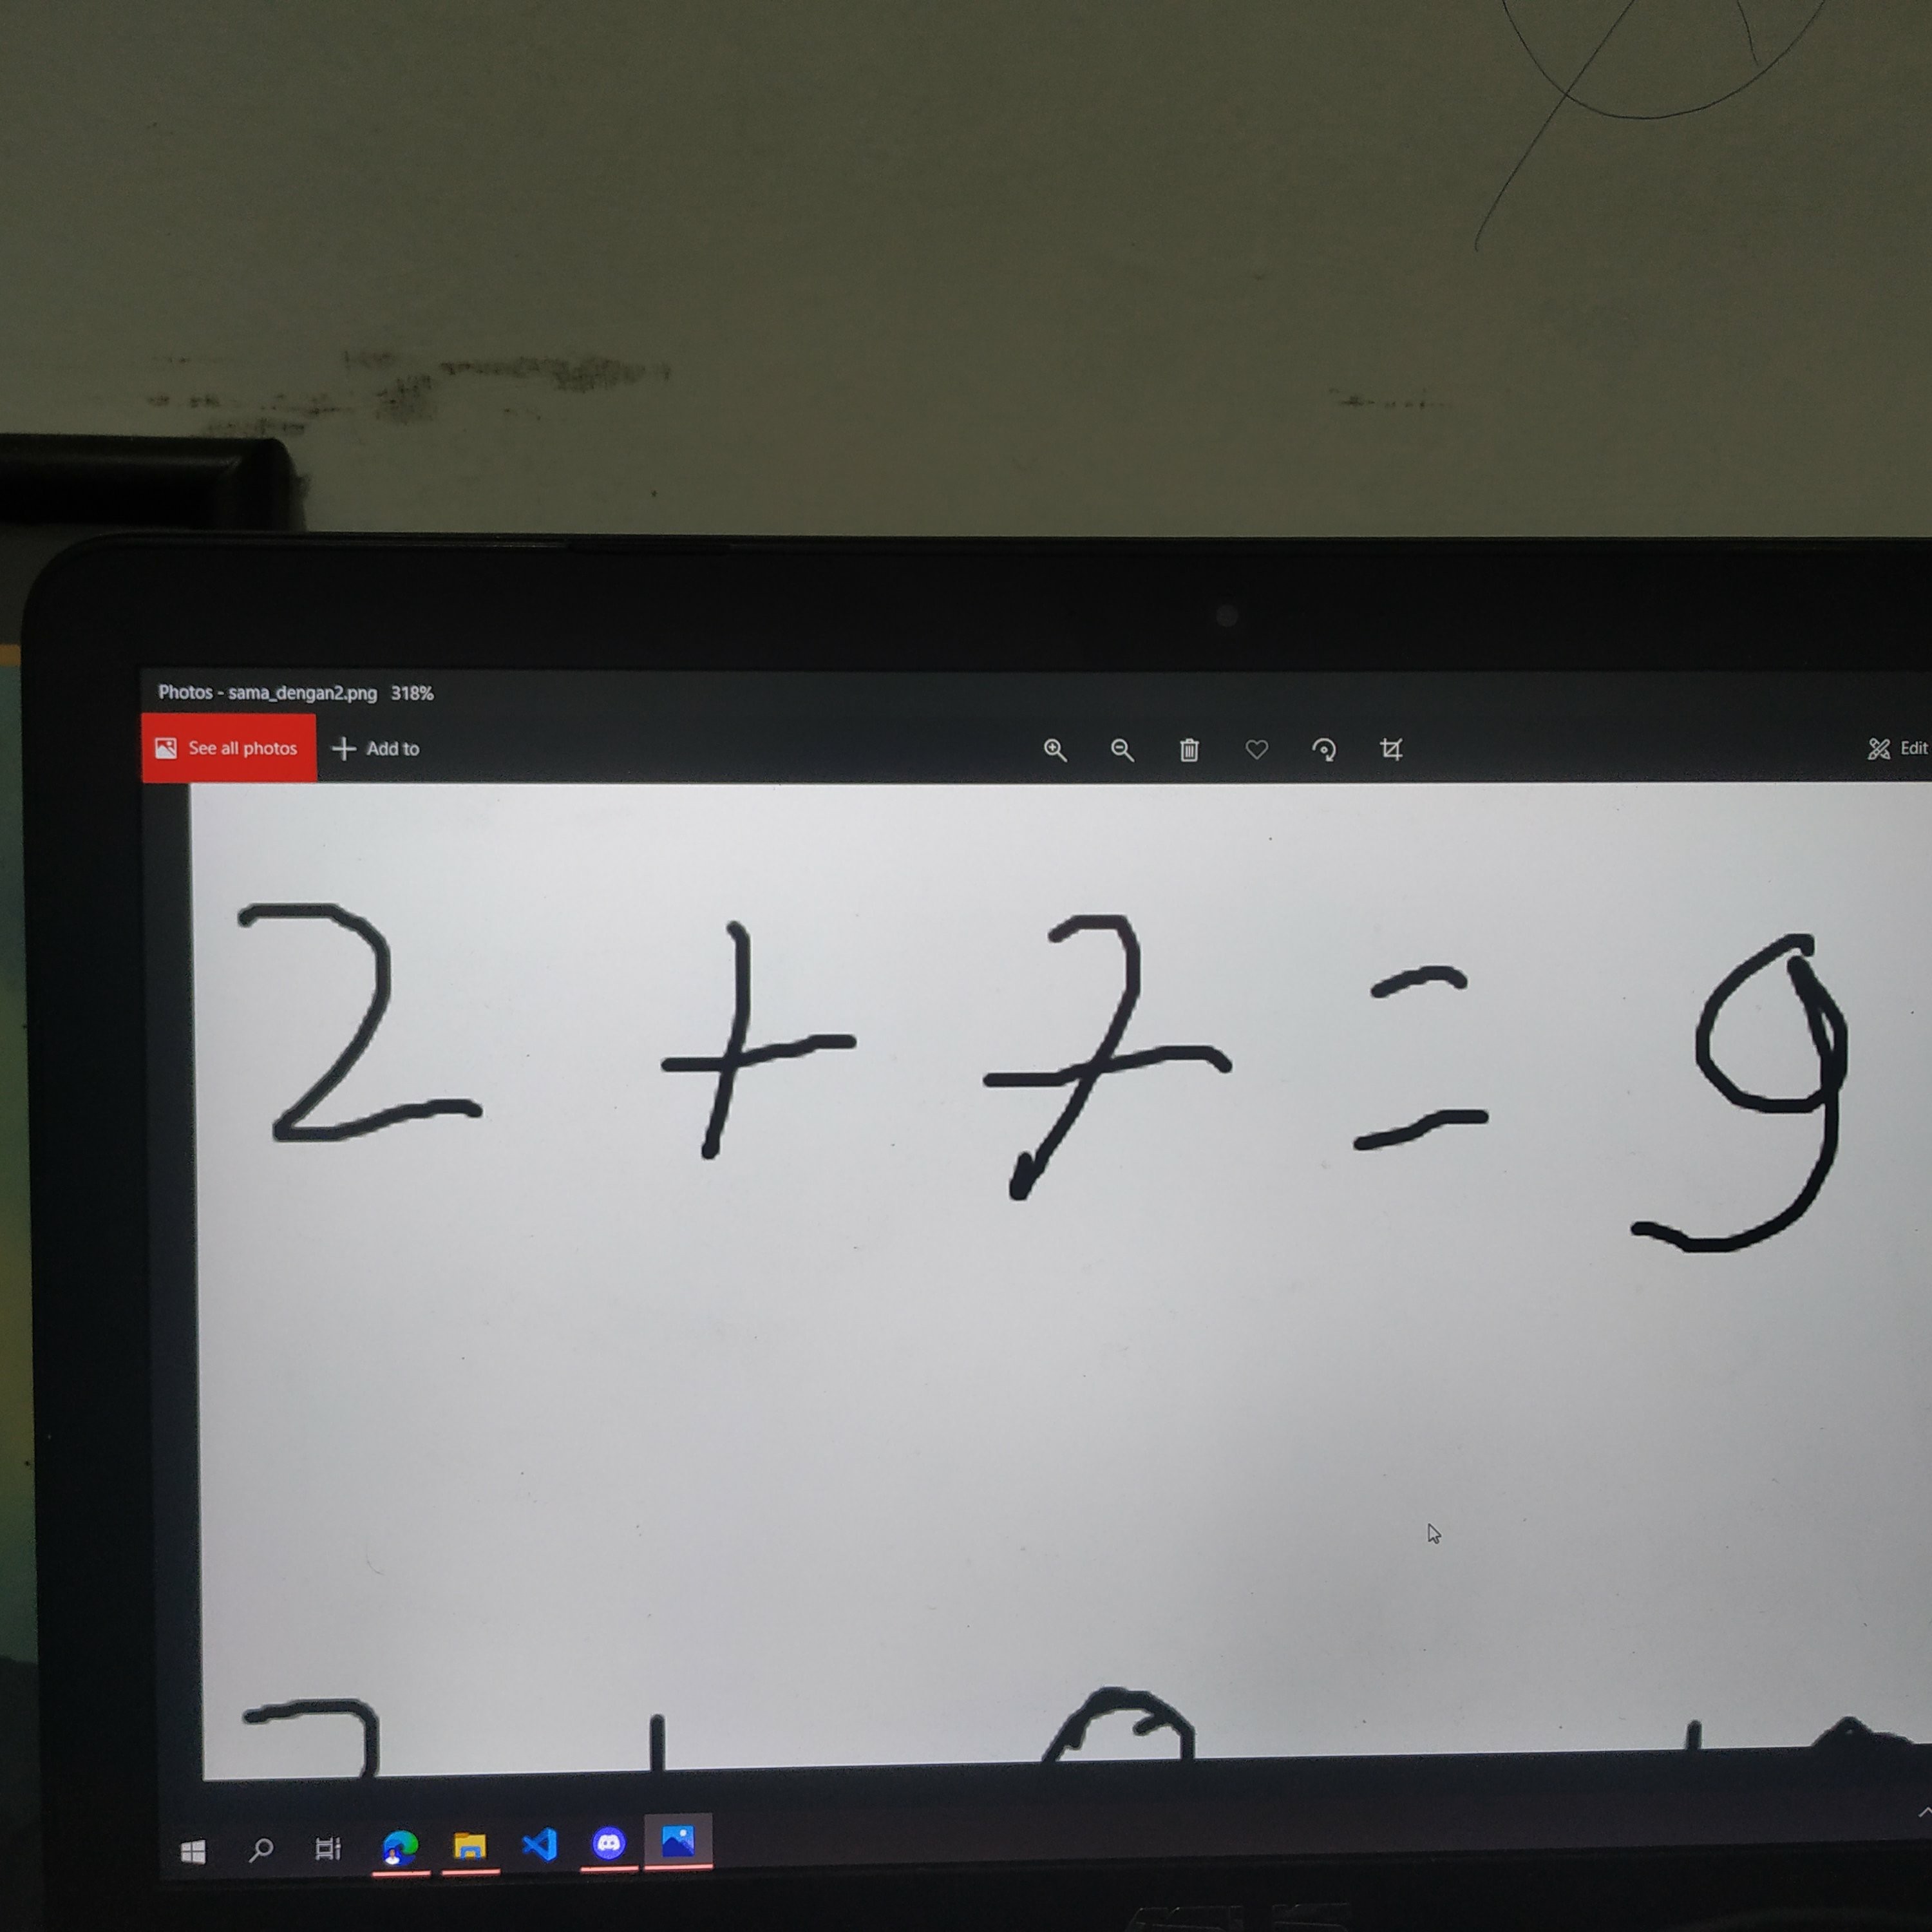 Photos - sama_dengan2.png 318%
See all photos Add to Edit
2 + 7 = 9